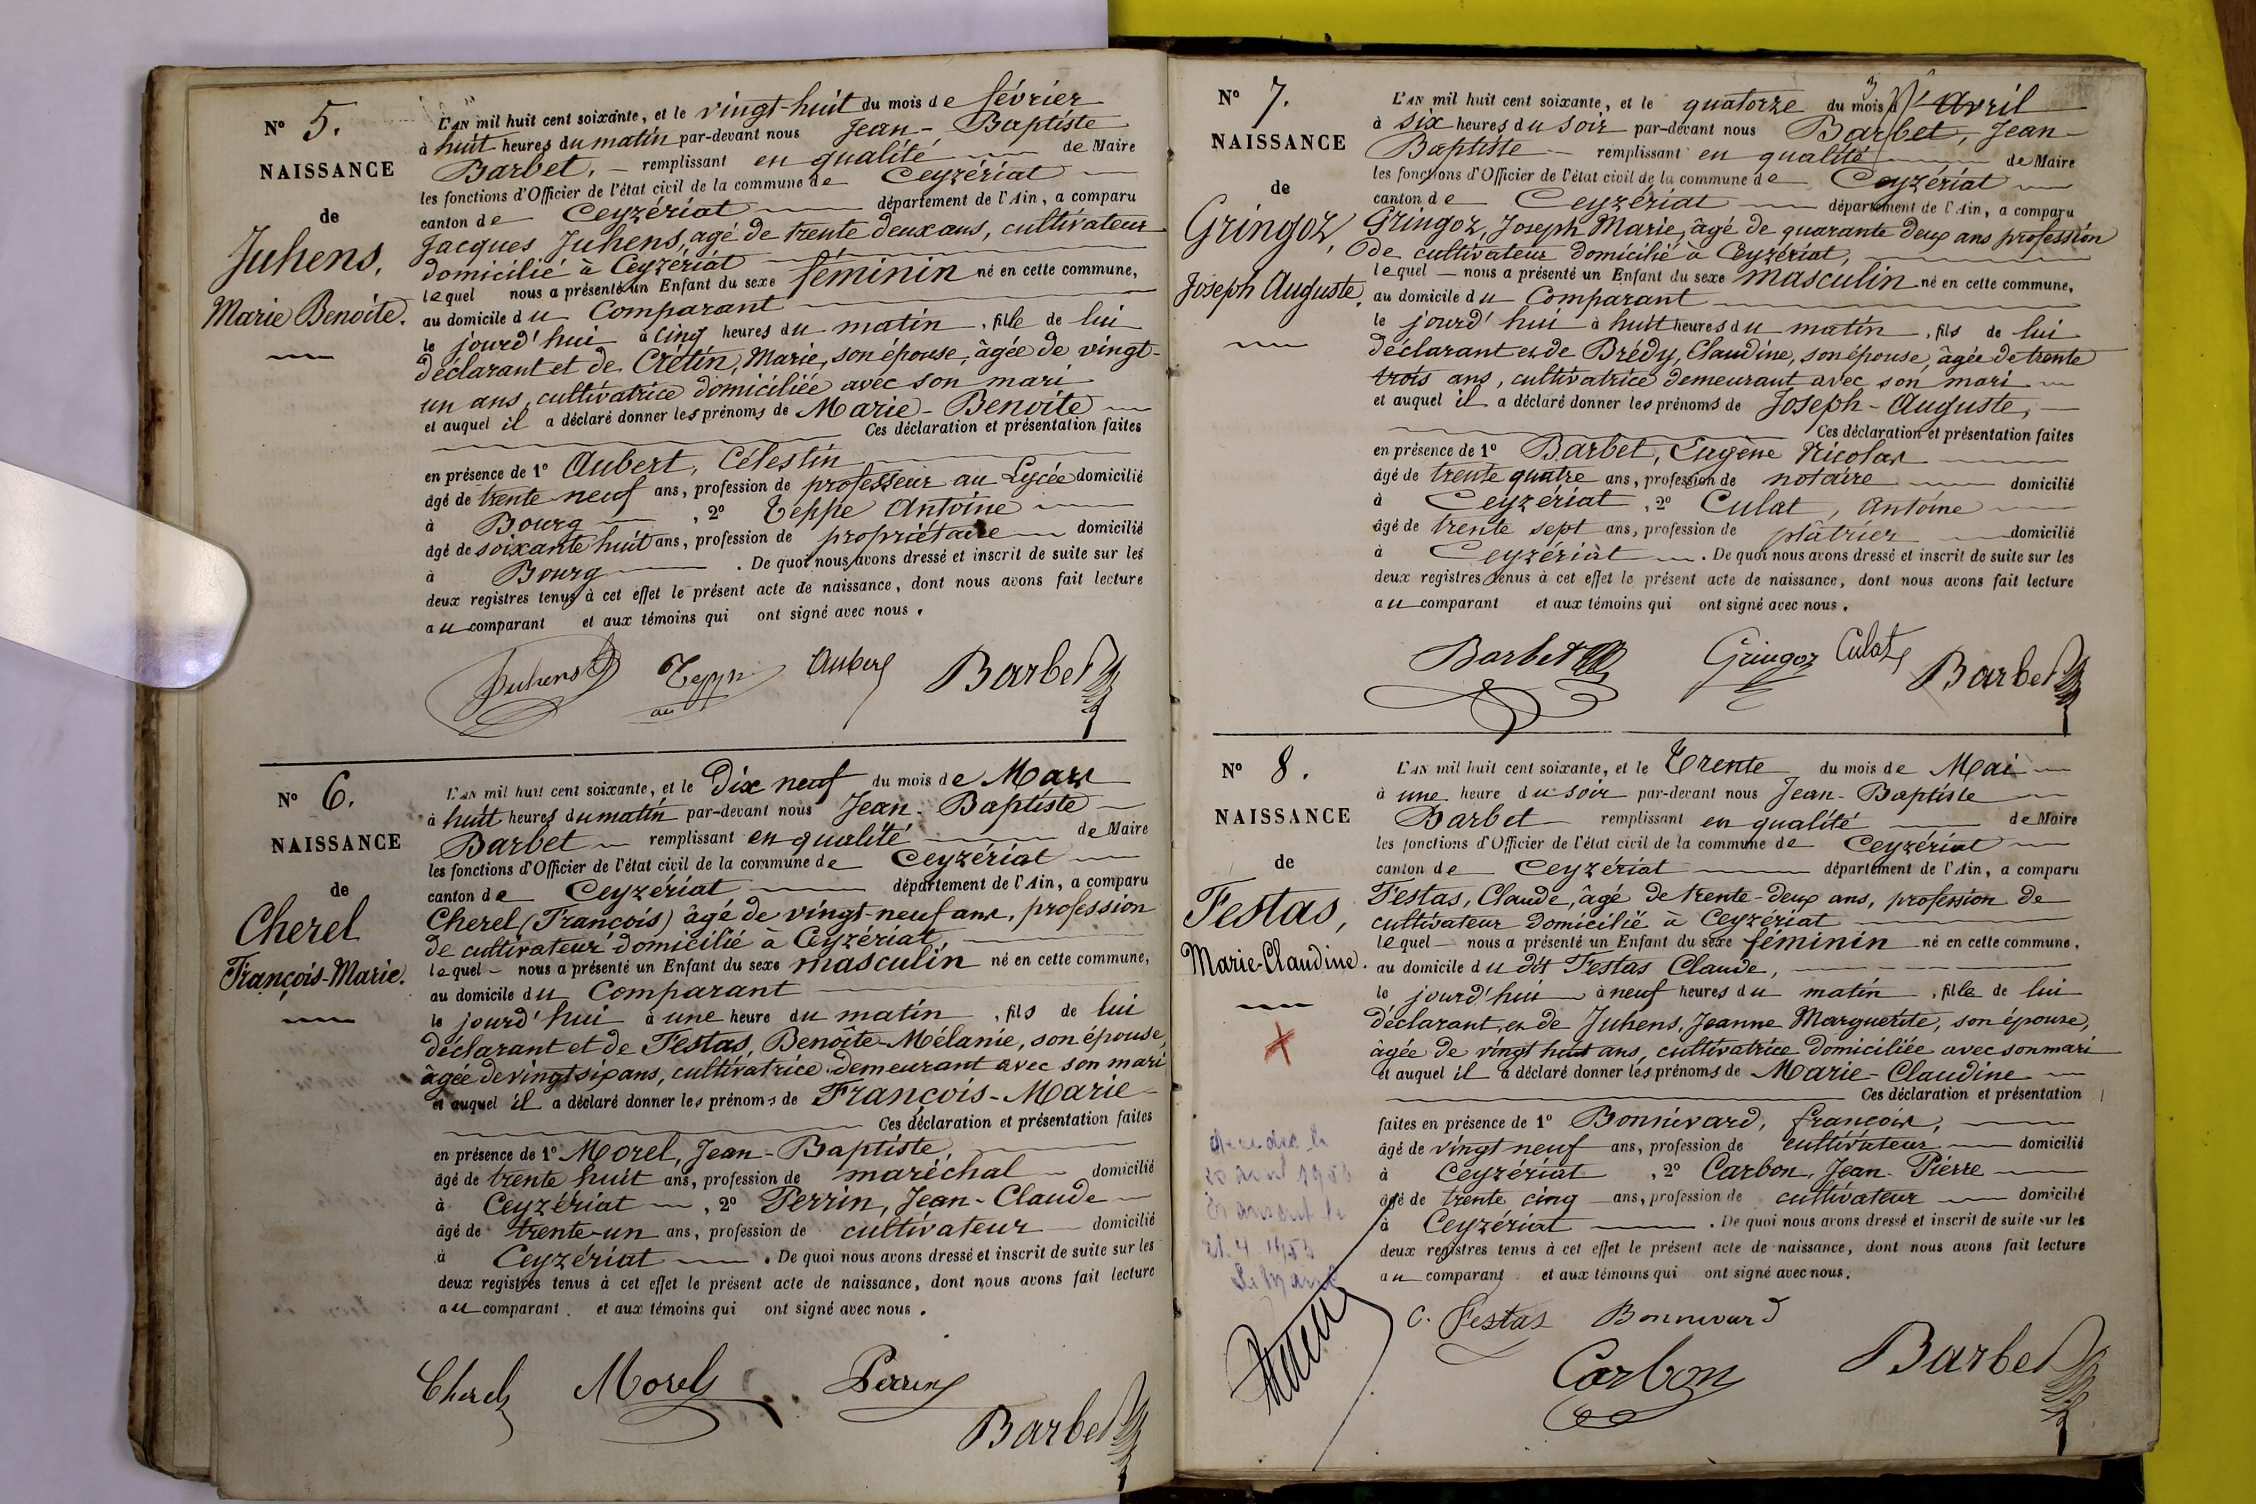 N° 5.
NAISSANCE
de
Juhens,
Marie Benoite.
L'AN mil huit cent soixante, et le vingt-huit du mois de février
à huit heures du matin par-devant nous Jean-Baptiste
Barbet, remplissant en qualité de Maire
les fonctions d'Officier de l'état civil de la commune de Ceyzériat
canton de Ceyzériat département de l'Ain, a comparu
Jacques Juhens, agé de trente deux ans, cultivateur
domicilié à Ceyzériat
lequel nous a présenté un Enfant du sexe féminin né en cette commune,
au domicile du Comparant
le jourd'hui à cinq heures du matin, fille de lui
déclarant et de Crétin, Marie, son épouse, âgée de vingt-
un ans, cultivatrice domiciliée avec son mari
et auquel il a déclaré donner les prénoms de Marie-Benoite
Ces déclaration et présentation faites
en présence de 1° Aubert, Célestin
âgé de trente neuf ans, profession de professeur au Lycée domicilié
à Bourg, 2° Teppe Antoine
âgé de soixante huit ans, profession de propriétaire domicilié
à Bourg. De quoi nous avons dressé et inscrit de suite sur les
deux registres tenus à cet effet le présent acte de naissance, dont nous avons fait lecture
au comparant et aux témoins qui ont signé avec nous.
Juhens Aubert Barbet
N° 6.
NAISSANCE
de
Cherel
François-Marie.
L'AN mil huit cent soixante, et le Dix neuf du mois de Mars
à huit heures du matin par-devant nous Jean-Baptiste
Barbet remplissant en qualité de Maire
les fonctions d'Officier de l'état civil de la commune de Ceyzériat
canton de Ceyzériat département de l'Ain, a comparu
Cherel (François) âgé de vingt-neuf ans, profession
de cultivateur domicilié à Ceyzériat,
lequel nous a présenté un Enfant du sexe masculin né en cette commune,
au domicile du Comparant
le jourd'hui à une heure du matin, fils de lui
déclarant et de Festas, Benoîte-Mélanie, son épouse,
âgée de vingt six ans, cultivatrice demeurant avec son mari
et auquel il a déclaré donner les prénoms de François-Marie
Ces déclaration et présentation faites
en présence de 1° Morel, Jean-Baptiste,
âgé de trente huit ans, profession de maréchal domicilié
à Ceyzériat, 2° Perrin, Jean-Claude
âgé de trente-un ans, profession de cultivateur domicilié
à Ceyzériat. De quoi nous avons dressé et inscrit de suite sur les
deux registres tenus à cet effet le présent acte de naissance, dont nous avons fait lecture
au comparant et aux témoins qui ont signé avec nous.
Cherel Morel Perrin
Barbet
N° 7.
NAISSANCE
de
Gringoz,
Joseph Auguste,
L'AN mil huit cent soixante, et le quatorze du mois d'Avril
à six heures du soir par-devant nous Barbet, Jean-
Baptiste remplissant en qualité de Maire
les fonctions d'Officier de l'état civil de la commune de Ceyzériat
canton de Ceyzériat département de l'Ain, a comparu
Gringoz, Joseph Marie, âgé de quarante deux ans profession
de cultivateur domicilié à Ceyzériat,
lequel nous a présenté un Enfant du sexe masculin né en cette commune,
au domicile du Comparant
le jourd'hui à huit heures du matin, fils de lui
déclarant et de Brédy, Claudine, son épouse, âgée de trente
trois ans, cultivatrice demeurant avec son mari
et auquel il a déclaré donner les prénoms de Joseph-Auguste,
Ces déclaration et présentation faites
en présence de 1° Barbet, Eugène Nicolas
âgé de trente quatre ans, profession de notaire domicilié
à Ceyzériat, 2° Culat, Antoine
âgé de trente sept ans, profession de plâtrier domicilié
à Ceyzériat. De quoi nous avons dressé et inscrit de suite sur les
deux registres tenus à cet effet le présent acte de naissance, dont nous avons fait lecture
au comparant et aux témoins qui ont signé avec nous.
Barbet Gringoz Culat Barbet
N° 8.
NAISSANCE
de
Festas,
Marie-Claudine.
L'AN mil huit cent soixante, et le Trente du mois de Mai
à une heure du soir par-devant nous Jean-Baptiste
Barbet remplissant en qualité de Maire
les fonctions d'Officier de l'état civil de la commune de Ceyzériat
canton de Ceyzériat département de l'Ain, a comparu
Festas, Claude, âgé de trente-deux ans, profession de
cultivateur domicilié à Ceyzériat
lequel nous a présenté un Enfant du sexe féminin né en cette commune,
au domicile du dit Festas Claude,
le jourd'hui à neuf heures du matin, fille de lui
déclarant, et de Juhens, Jeanne Marguerite, son épouse,
âgée de vingt huit ans, cultivatrice domiciliée avec son mari
et auquel il a déclaré donner les prénoms de Marie-Claudine
Ces déclaration et présentation
faites en présence de 1° Bonnivard, françois,
âgé de vingt neuf ans, profession de cultivateur domicilié
à Ceyzériat, 2° Carbon, Jean-Pierre
âgé de trente cinq ans, profession de cultivateur domicilié
à Ceyzériat. De quoi nous avons dressé et inscrit de suite sur les
deux registres tenus à cet effet le présent acte de naissance, dont nous avons fait lecture
au comparant et aux témoins qui ont signé avec nous.
C. Festas Bonnivard
Carbon Barbet